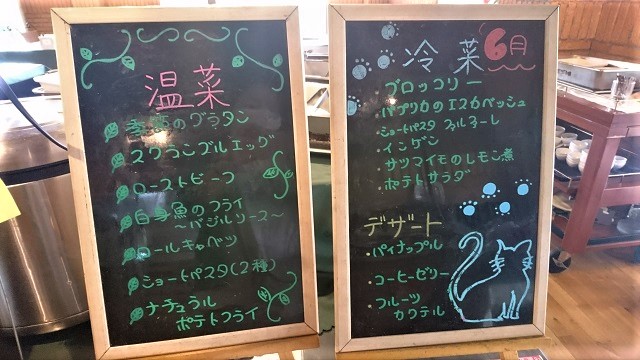 温菜
季節のグラタン
スクランブルエッグ
ローストビーフ
白身魚のフライ
〜バジルソース〜
ロールキャベツ
ショートパスタ(2種)
ナチュラル
ポテトフライ
冷菜 6月
・ブロッコリー
・パプリカのエスカベッシュ
・ショートパスタ
・インゲン
・サツマイモのレモン煮
・ポテトサラダ
デザート
・パイナップル
・コーヒーゼリー
・フルーツ
カクテル